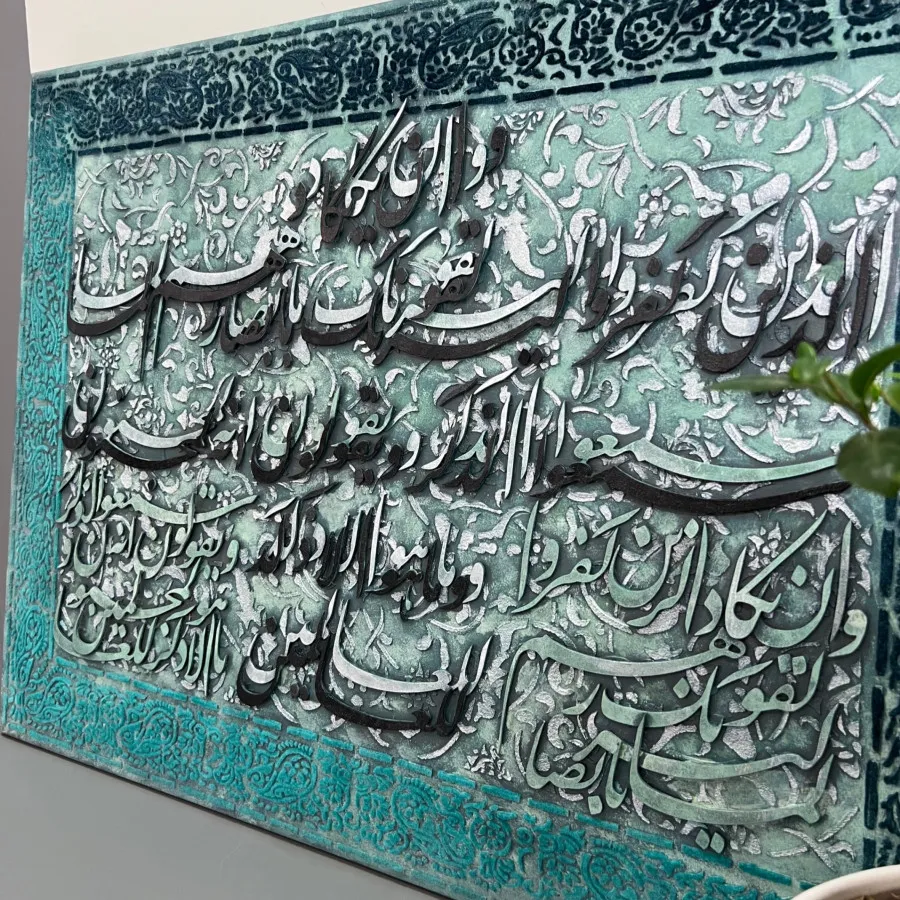 وان یکاد
الذین کفروا لیزلقونک بابصارهم لما
سمعوا الذکر و یقولون انه لمجنون
وما هو الا ذکر
للعالمین
وان یکاد الذین کفروا
لیزلقونک بابصارهم
لما
سمعوا الذکر
و یقولون انه
لمجنون و ما هو
الا ذکر للعالمین